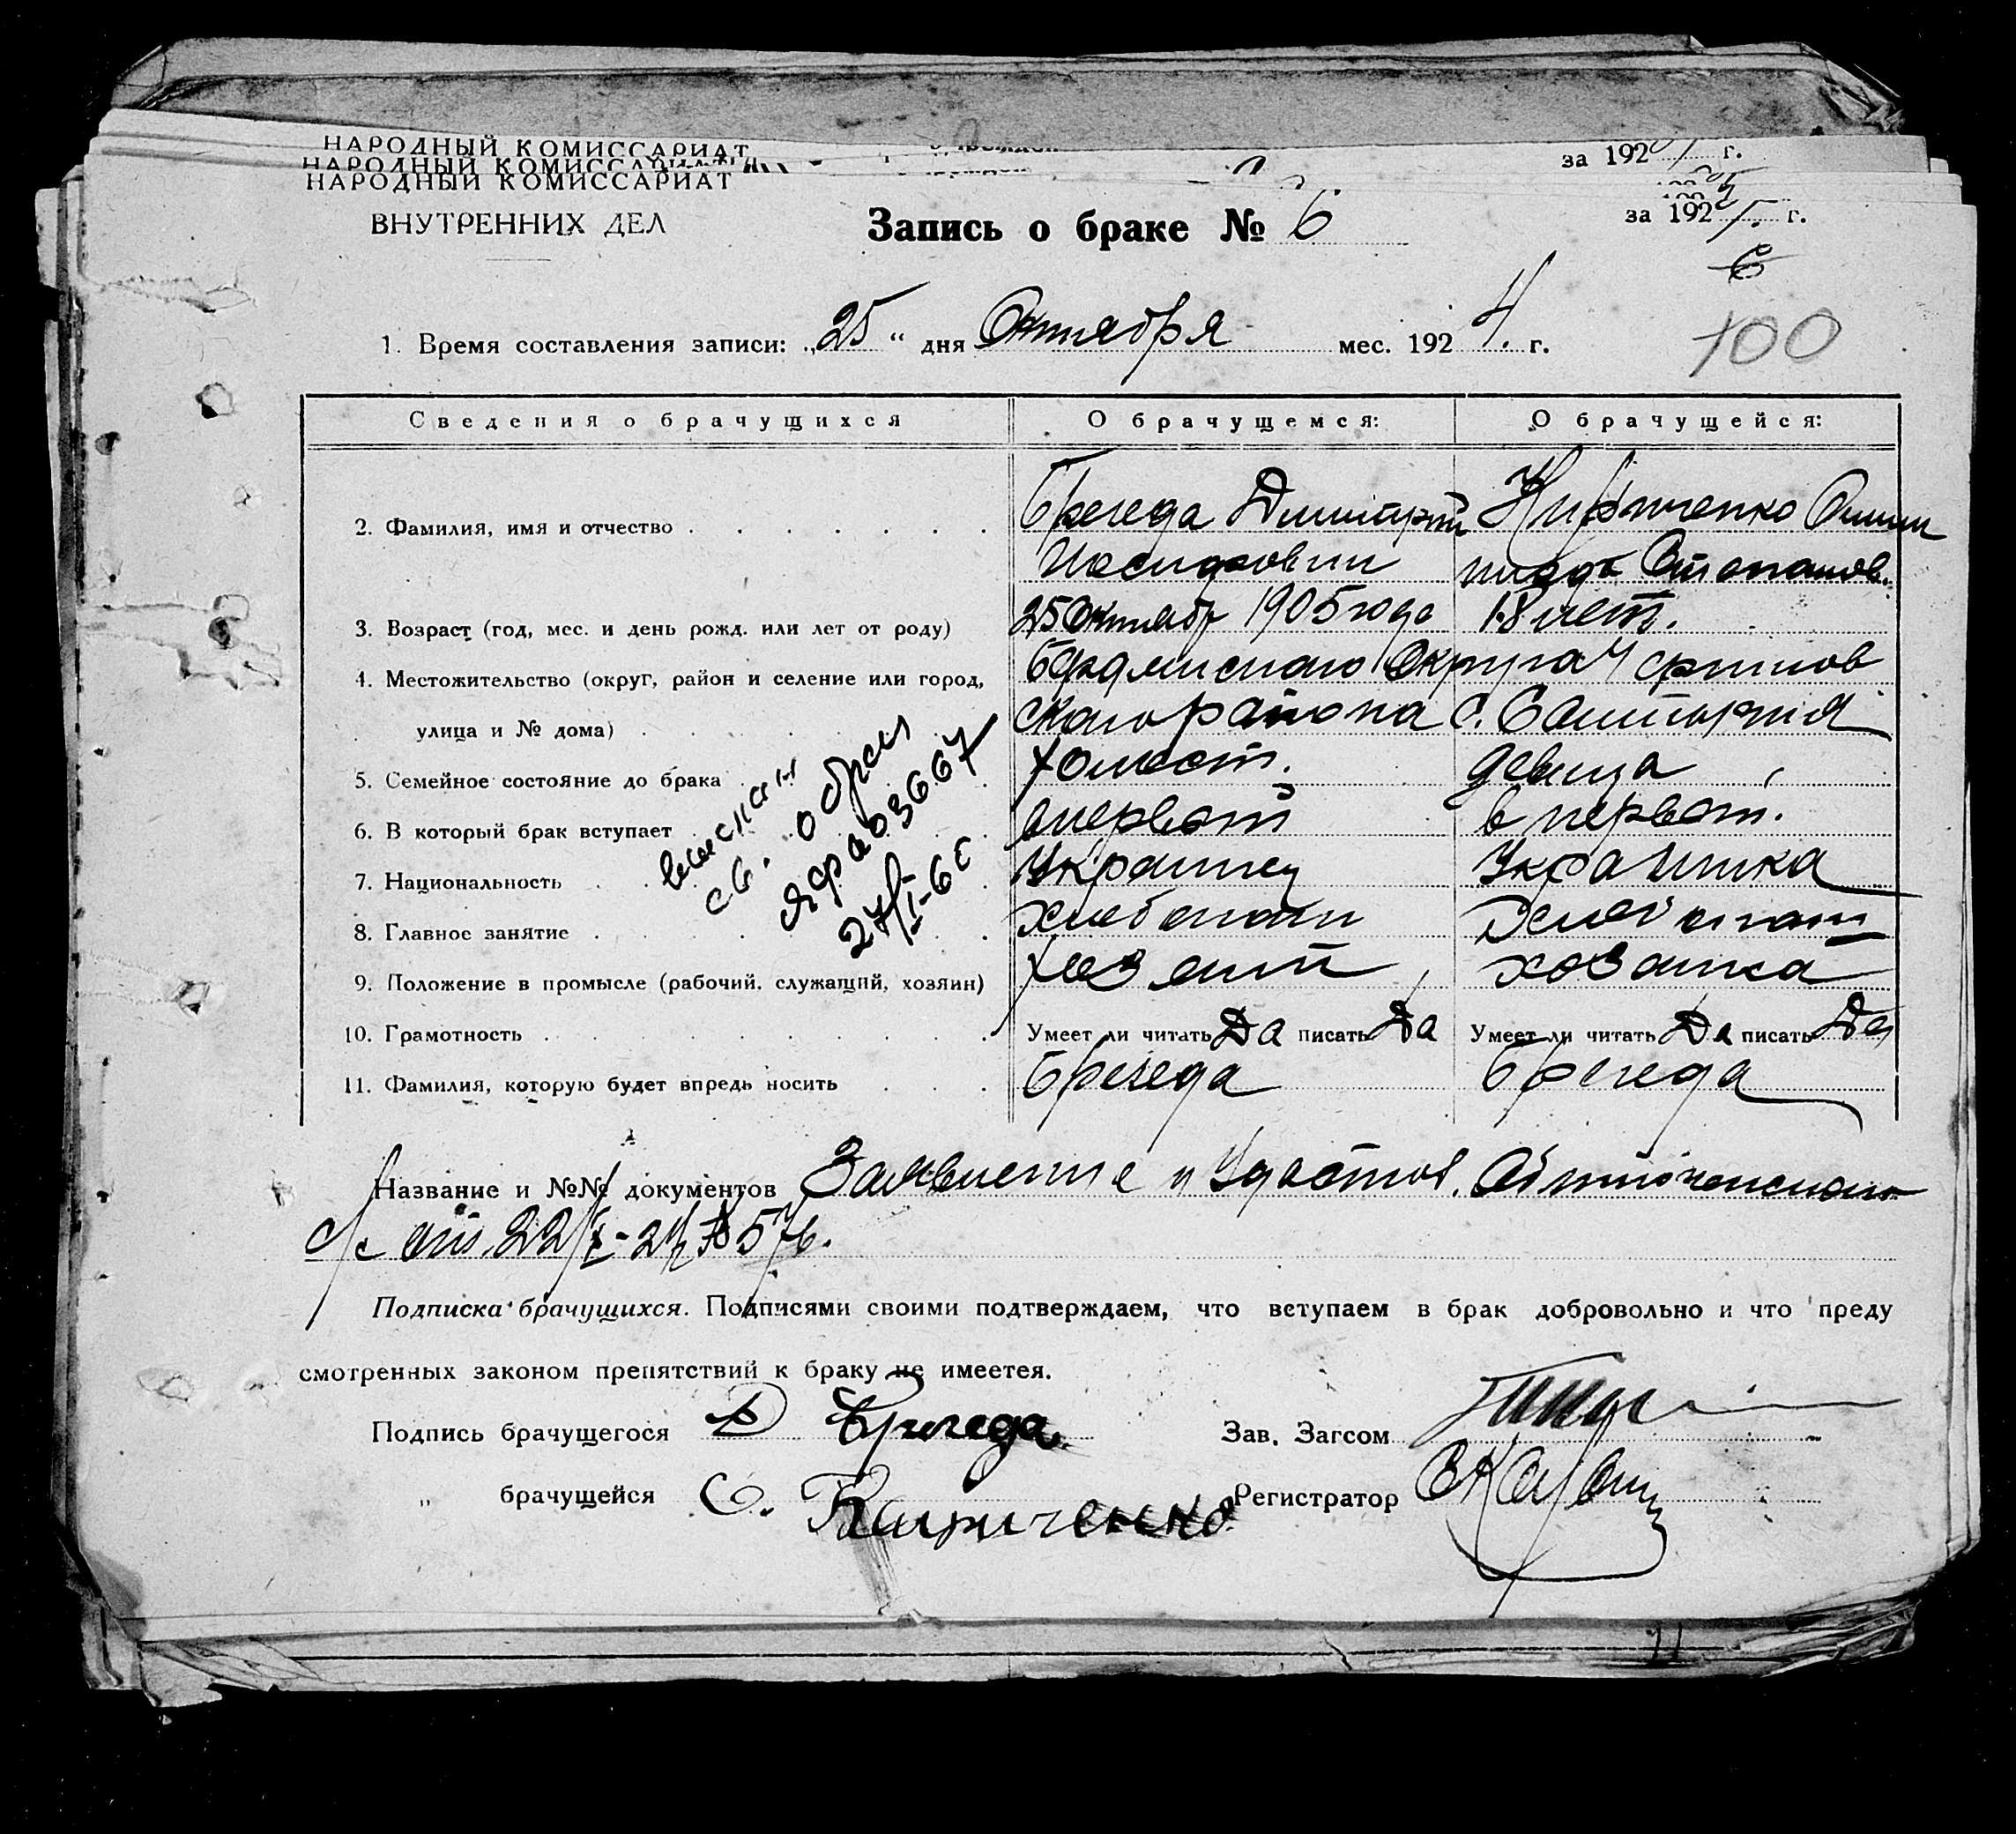 НАРОДНЫЙ КОМИССАРИАТ
за 192 г.
НАРОДНЫЙ КОМИССАРИАТ
НАРОДНЫЙ КОМИССАРИАТ
ВНУТРЕННИХ ДЕЛ
Запись о браке № 6
за 192 г.
6
100
1. Время составления записи: „25“ дня Октября мес. 1924. г.
Сведения о брачущихся О брачущемся: О брачущейся:
2. Фамилия, имя и отчество Брегеда Димитрий Кириченко
3. Возраст (год, мес. и день рожд. или лет от роду) 25 Октябр 1905 года 18 лет.
4. Местожительство (округ, район и селение или город,
улица и № дома) скаго района с.
5. Семейное состояние до брака холост. девица
6. В который брак вступает впервой в первой.
7. Национальность Украинец Украинка
8. Главное занятие хлебопаш
9. Положение в промысле (рабочий, служащий, хозяин) хозяин хозяика
10. Грамотность Умеет ли читать Да писать Да Умеет ли читать Да писать Да
11. Фамилия, которую будет впредь носить Брегеда Брегеда
выслан
св. о брак
ЯФ
27/I-6
Название и №№ документов Заявление и Удостов.
от 22/X-24 № 576.
Подписка брачущихся. Подписями своими подтверждаем, что вступаем в брак добровольно и что преду
смотренных законом препятствий к браку не имеетея.
Подпись брачущегося Д Брегеда Зав. Загсом
„ брачущейся С. Кириченко Регистратор
11